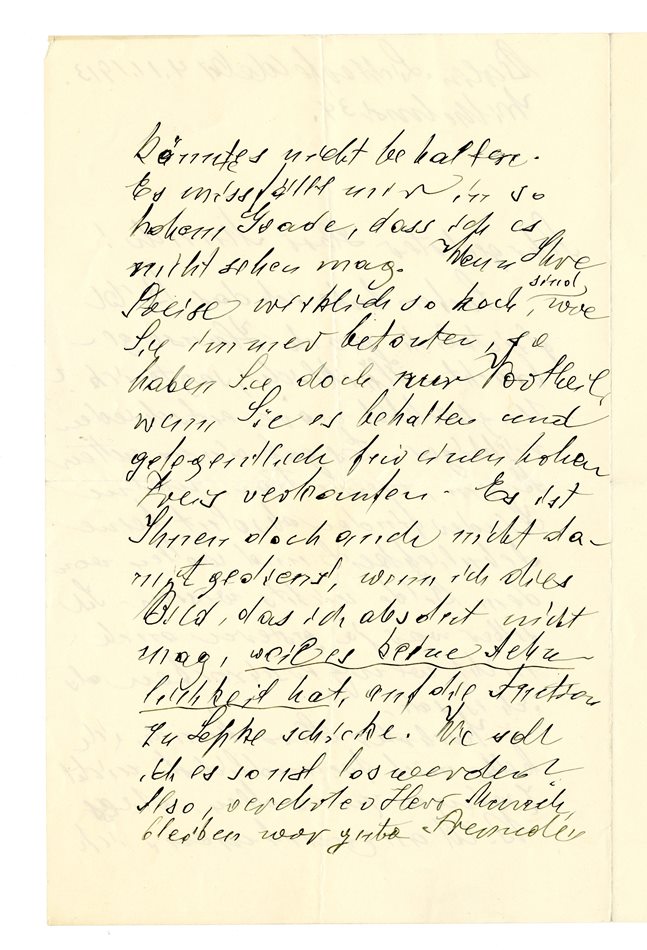 könnte es nicht behalten.
Es missfällt mir in so
hohem Grade, dass ich es
nicht sehen mag. Wenn Ihre
Preise wirklich so hoch sind, wie
Sie immer betonten, so
haben Sie doch nur Vortheil,
wenn Sie es behalten und
gelegentlich für einen hohen
Preis verkaufen. Es ist
Ihnen doch auch nicht da-
mit gedient, wenn ich dies
Bild, das ich absolut nicht
mag, weil es keine Aehn-
lichkeit hat, auf die Auction
zu Lepke schicke. Wie soll
ich es sonst loswerden?
Also, verehrter Herr Munch,
bleiben wir gute Freunde